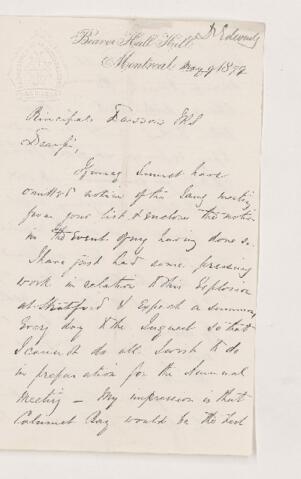 Dr Edwards
Beaver Hall Hill,
Montreal May 9 1877
Principal Dawson FRS
Dear Sir,
I must have
omitted notice of the meeting
from your list & enclose the notice
in the event of my having done so.
I have just had some pressing
work in relation to this Explosion
at Stratford & expect a summons
Every day to the Inquest so that
I cannot do all I wish to do
in preparation for the Annual
Meeting – My impression is that
Calumet Bay would be the best